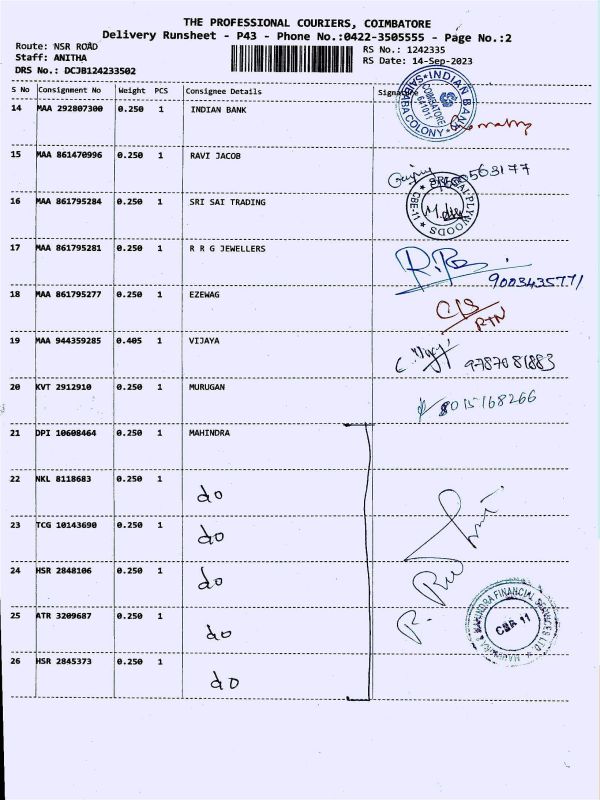 THE PROFESSIONAL COURIERS, COIMBATORE
Delivery Runsheet - P43 - Phone No.:0422-3505555 - Page No.:2
Route: NSR ROAD RS No.: 1242335
Staff: ANITHA RS Date: 14-Sep-2023
DRS No.: DCJB124233502
S No Consignment No Weight PCS Consignee Details Signature
14 MAA 292807300 0.250 1 INDIAN BANK
INDIAN BANK SAIBABA COLONY COIMBATORE 641011
15 MAA 861470996 0.250 1 RAVI JACOB
563177
16 MAA 861795284 0.250 1 SRI SAI TRADING
SRI SAI PLYWOODS CBE-11
17 MAA 861795281 0.250 1 R R G JEWELLERS
9003435771
18 MAA 861795277 0.250 1 EZEWAG
C/S
RTN
19 MAA 944359285 0.405 1 VIJAYA
9787081883
20 KVT 2912910 0.250 1 MURUGAN
8015168266
21 DPI 10608464 0.250 1 MAHINDRA
22 NKL 8118683 0.250 1 do
23 TCG 10143690 0.250 1 do
24 HSR 2848106 0.250 1 do
25 ATR 3209687 0.250 1 do
MAHINDRA & MAHINDRA FINANCIAL SERVICES LTD. CBE 11
26 HSR 2845373 0.250 1 do